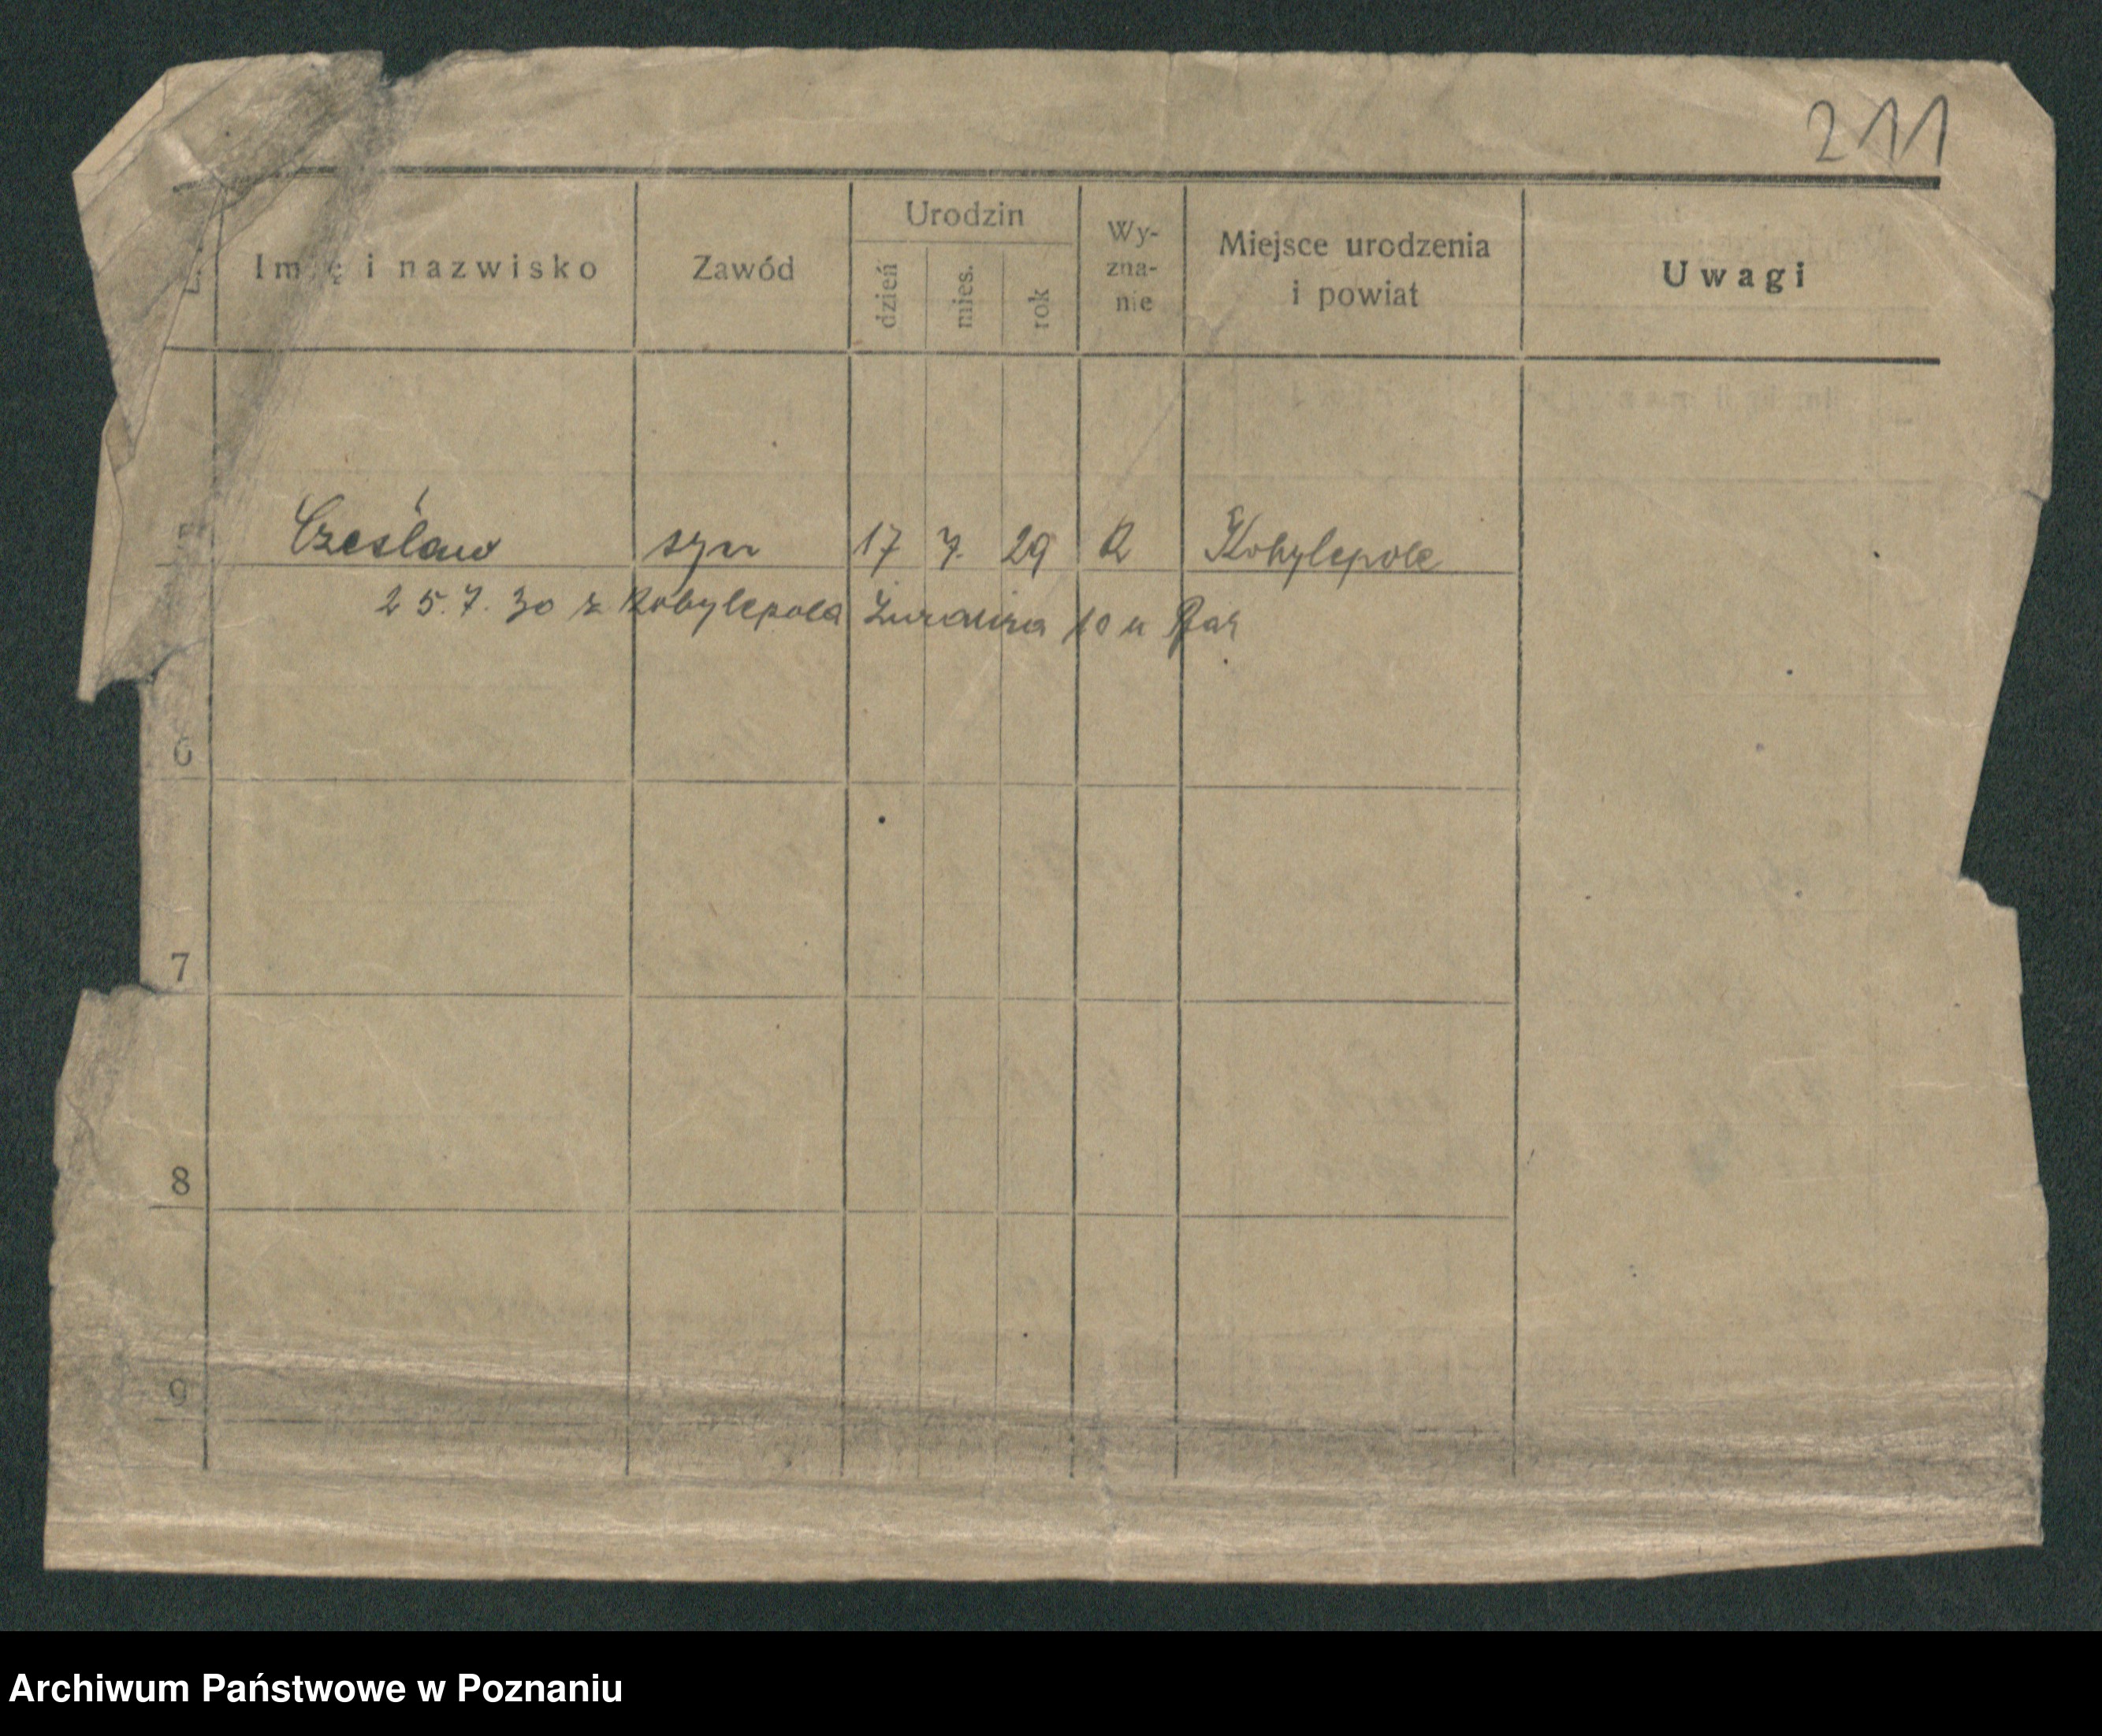 211
L. Imię i nazwisko Zawód Urodzin dzień mies. rok Wy-zna-nie Miejsce urodzenia i powiat Uwagi
5 Czesław syn 17 7. 29 R Kobylepole
25.7.30 z Kobylepola 10 u
6
7
8
9
Archiwum Państwowe w Poznaniu